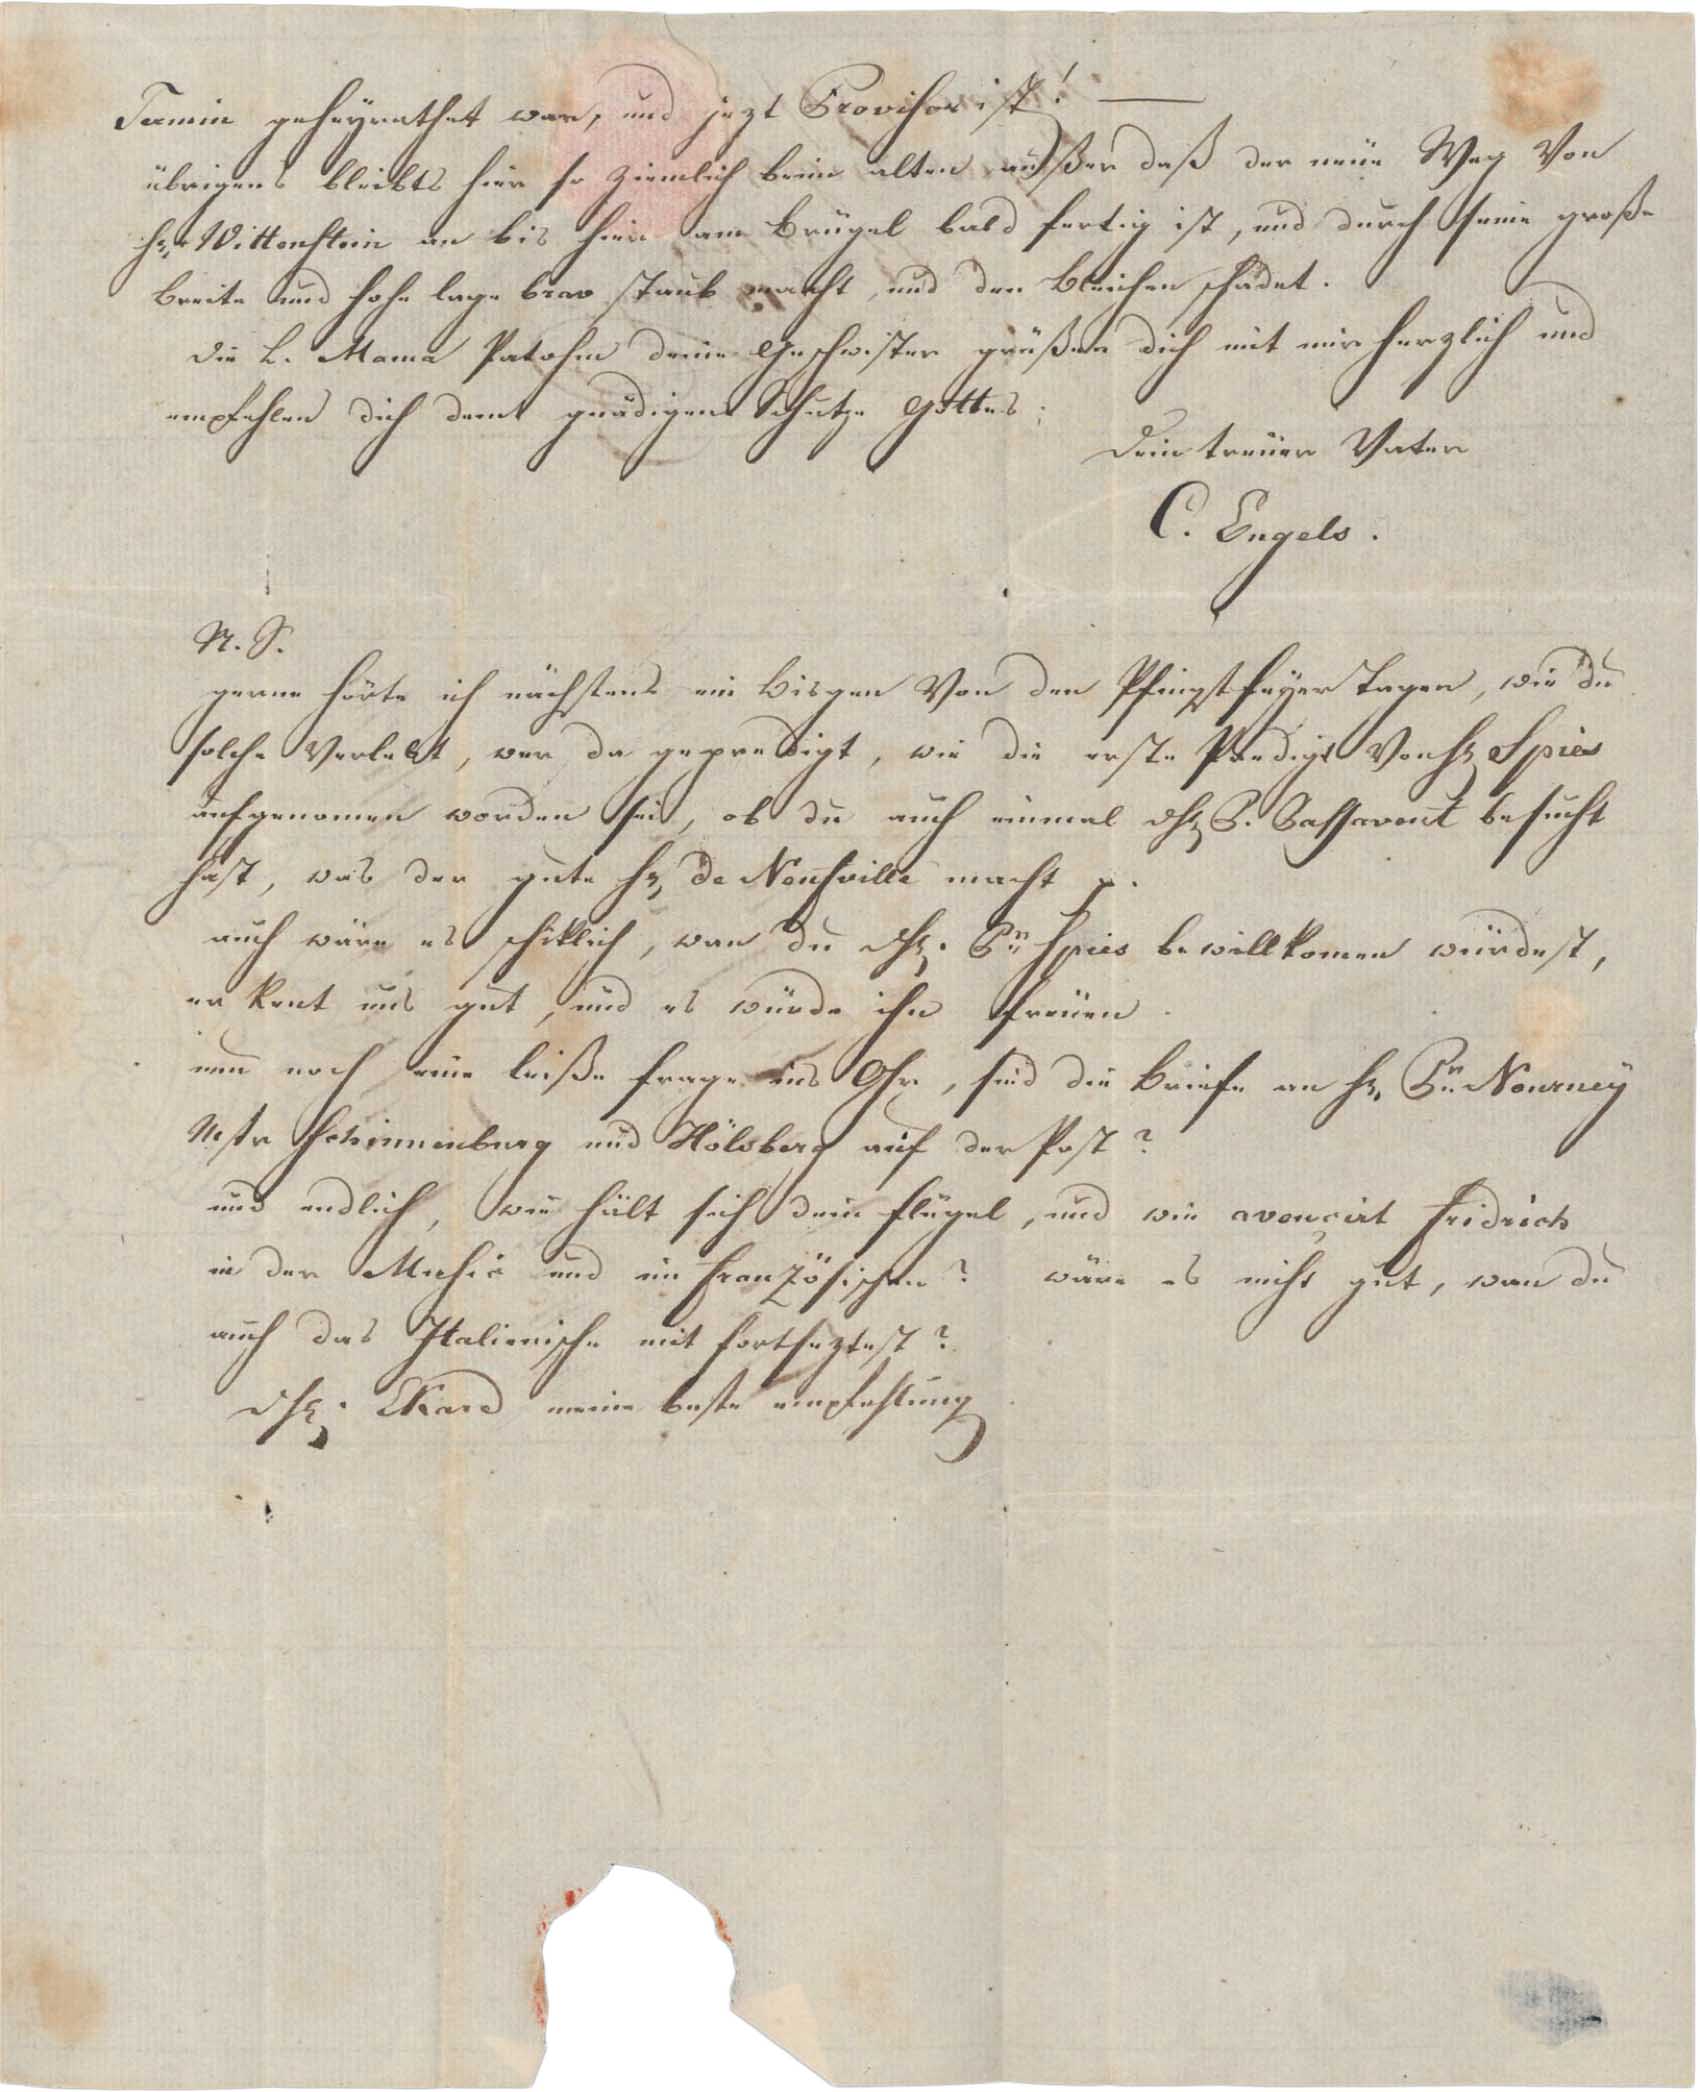 Termin geheyrathet war, und jezt Provisor ist! —
übrigens bleibts hier so ziemlich beim alten außer daß der neüe Weg Von
hr Wittenstein an bis hier am Brügel bald fertig ist, und durch seine große
breite und hohe lage brav staub macht, und den bleichen schadet.
die l. Mama Patohm deine Geschwister grüßen dich mit mir herzlich und
empfehlen dich dem gnädigen Schutze Gottes;
dein treüer Vater
C. Engels.
N. S.
gerne hörte ich nächstens ein bisgen Von den Pfingstfeyer tagen, wie du
solche Verlebt, wer da gepredigt, wie die erste Predigt Von hr Spies
aufgenomen worden sei, ob du auch einmal dhr P. Passavent besucht
hast, was der gute hr de Neufville macht p.
auch wäre es schiklich, wan du dhr. Pn Spies bewillkomen würdest,
er kent uns gut, und es würde ihn freüen.
nun noch eine leiße frage ins Ohr, sind die briefe an hr Pn Nourney
Mstr Schinnenburg und Hölsberg auf der Post?
und endlich, wie hält sich dein flügel, und wie avençirt fridrich
in der Music und im französischen? wäre es nicht gut, wan du
auch das Italienische mit fortseztest?
dhr. EKard meine beste empfehlung